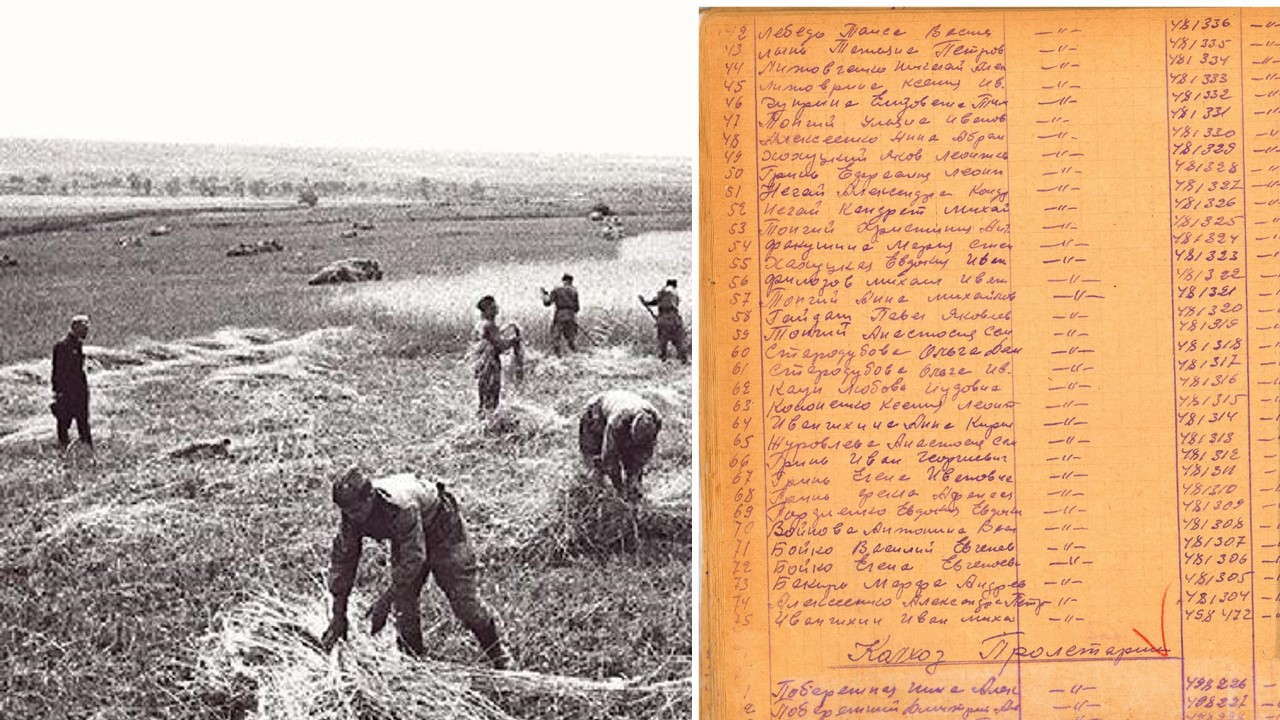 42 Лебедь Таиса Васил —"— 481336 —"—
43 Лынь Татьяна Петров —"— 481335 —"—
44 Николай Алек —"— 481334
45 Ксения Ив. —"— 481333
46 Елизовета Тим —"— 481332
47 Тонгий Ульяна Иванов —"— 481331
48 Алексеенко Анна Абрам —"— 481330
49 Хохуцкий Яков Леонтьев —"— 481329
50 Гринь Леонт —"— 481328
51 Негай Александра Конд —"— 481327
52 Негай Кандрат Михай —"— 481326
53 Тонгий Христиния Ант —"— 481325
54 Факушина Мария Степ —"— 481324
55 Хахуцкая Евдокия Иван —"— 481323
56 Филозов Михаил Иван —"— 481322
57 Тонгий Анна Михайлов —"— 481321
58 Гайдаш Павел Яковлев —"— 481320
59 Тонгий Анастасия Сем —"— 481319
60 Стародубова Ольга Дан —"— 481318
61 Стародубова Ольга Ив. —"— 481317
62 Каун Любовь —"— 481316
63 Кононенко Ксения Леонт —"— 481315
64 Иваничкина Анна Кирил —"— 481314
65 Журовлева Анастасия Сем —"— 481313
66 Гринь Иван Георгиевич —"— 481312
67 Гринь Елена Ивановна —"— 481311
68 Гринь Афанась —"— 481310
69 Гордиенко Евдокия Евдоким —"— 481309
70 Войнова Антонина Васил —"— 481308
71 Бойко Василий Евгенов —"— 481307
72 Бойко Елена Евгеновн —"— 481306
73 Бакум Марфа Андреев —"— 481305
74 Алексеенко Александра Петр —"— 481304
75 Иваничкин Иван Михай —"— 498472
Калхоз Пролетарий
1 Побережная Нина Алек —"— 498226
2 Побережний Дмитрий —"— 498227